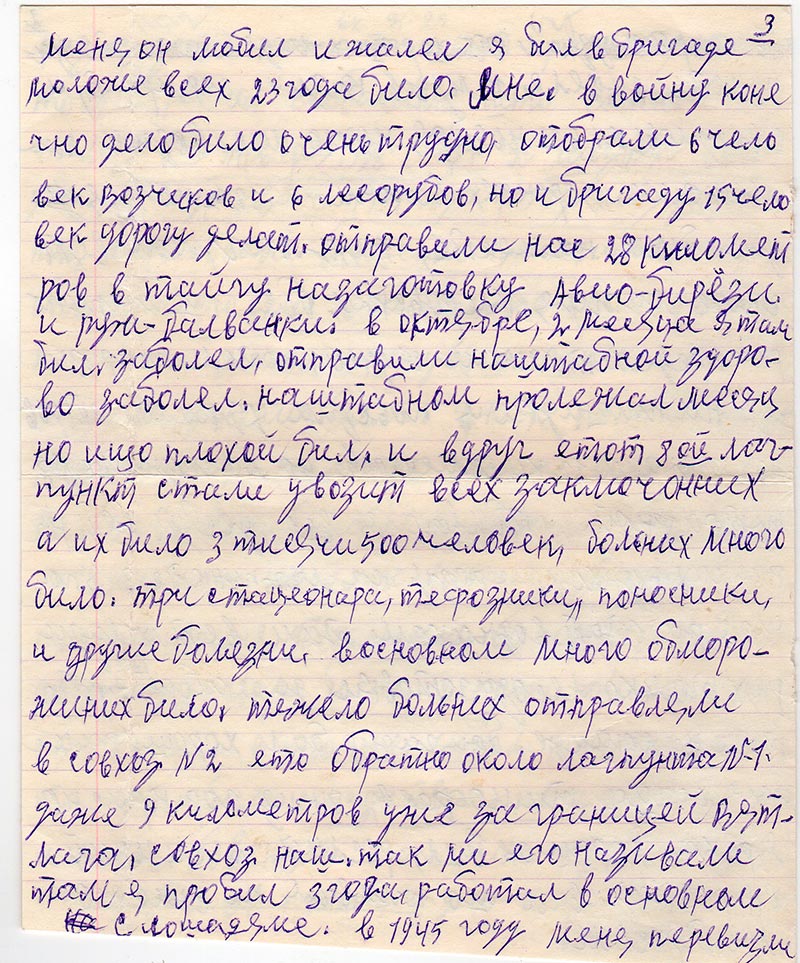 3
меня он любил и жалел я бил в бригаде
моложе всех 23 года било. мне. в войну коне
чно дело било очень трудно отобрали 6 чело
век возчиков и 6 лесорубов, но и бригаду 15 чело
век дорогу делат. отправили нас 28 километ
ров в тайгу на заготовку Авио-бирёзи.
и ружи-балванки. в октебре, 2 месяца я там
бил. заболел. отправили наштабной здоро-
во заболел. наштабном пролежал месяц
но ищо плохой бил. и вдруг етот 8ой лаг-
пункт стали увозит всех заключонних
а их било 3 тисячи 500 человек, болних много
било. три стационара, тефозники,, поносники,
и другие болезни. восновном много обморо-
жиних било. тежело больних отправляли
в совхоз N2 ето обратно около лагпункта N-1.
даже 9 километров уже за границей Вят-
лага. совхоз наш. так ми его називали
там я пробил 3 года, работал в основном
с лошадяме. в 1945 году меня перевизли